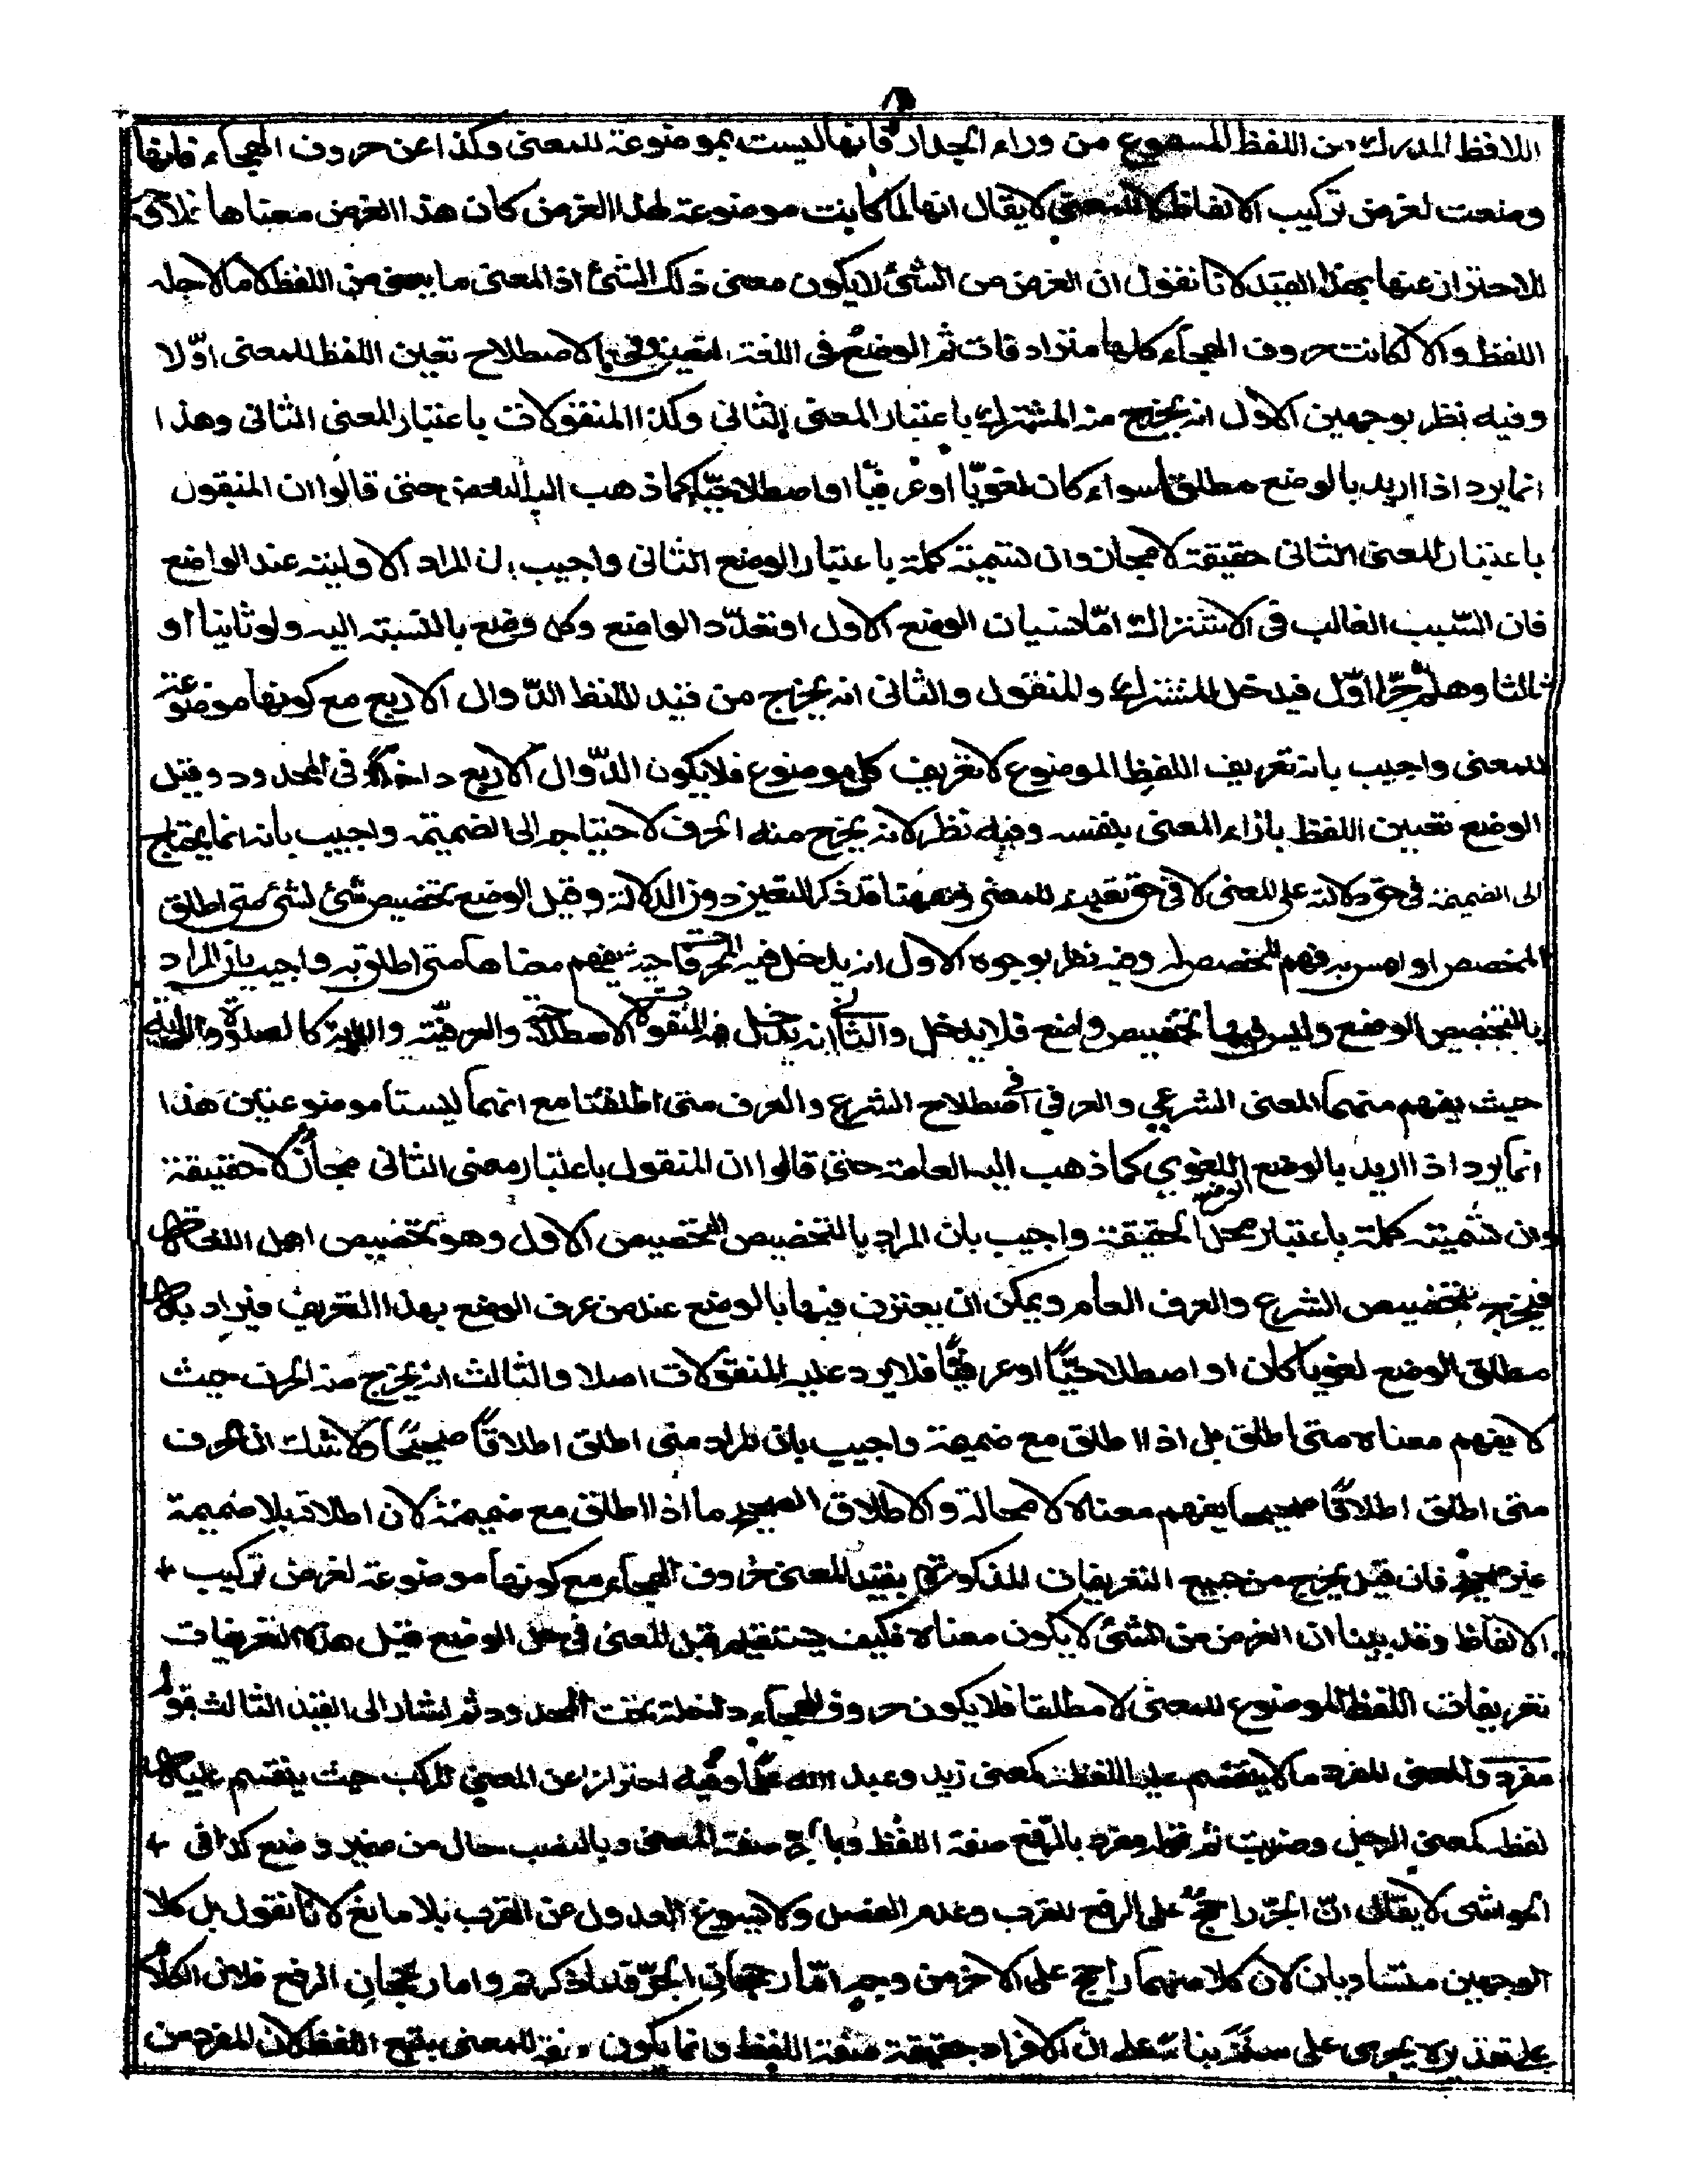 ٨
اللافظ المدرك من اللفظ المسموع من وراء الجدار فانها ليست بموضوعة للمعنى وكذا عن حروف الهجاء فانها
وضعت لغرض تركيب الالفاظ لا للمعنى لا يقال انها لما كانت موضوعة لهذا الغرض كان هذا الغرض معناها فلا
للاحتراز عنها بهذا القيد لانا نقول ان الغرض من الشئ لا يكون معنى ذلك الشئ اذ المعنى ما يعنى من اللفظ لا ما لاجله
اللفظ والا لكانت حروف الهجاء كلها مترادفات ثم الوضع فى اللغة التعيين وفى الاصطلاح تعيين اللفظ للمعنى اوّلا
وفيه نظر بوجهين الاول انه يخرج منه المشترك باعتبار المعنى الثانى وكذا المنقولات باعتبار المعنى الثانى وهذا
انما يرد اذا اريد بالوضع مطلقا سواء كان لغويّا او عرفيّا او اصطلاحيّا كما ذهب اليه البعض حتى قالوا ان المنقول
باعتبار المعنى الثانى حقيقة لا مجاز وان تسميته كلمة باعتبار الوضع الثانى واجيب بان المراد الاولية عند الواضع
فان السّبب الغالب فى الاشتراك امّا نسيان الوضع الاول او تعدّد الواضع وكل وضع بالنسبة اليه ولو ثانيا او
ثالثا وهلم جرّا اوّل فيدخل المشترك والمنقول والثانى انه يخرج من قيد اللفظ الدّوال الاربع مع كونها موضوعة
للمعنى واجيب بانه تعريف اللفظ الموضوع لا تعريف كل موضوع فلا يكون الدّوال الاربع داخلا فى المحدود وقيل
الوضع تعيين اللفظ بازاء المعنى بنفسه وفيه نظر لانه يخرج منه الحرف لاحتياجه الى الضميمة واجيب بانه انما يحتاج
الى الضميمة فى حق دلالته على المعنى لا فى حق تعيينه للمعنى وههنا قد ذكر التعيين دون الدلالة وقيل الوضع تخصيص شئ لشئ متى اطلق
المخصص او احس به فهم المخصص له وفيه نظر بوجوه الاول انه يدخل فيه الحرف حيث يفهم معناها متى اطلق به واجيب بان المراد
بالتخصيص الوضع وليس فيها تخصيص واضع فلا يدخل والثانى انه يدخل فيه المنقولات الاصطلاحية والعرفيّة كالصلوة والدابة
حيث يفهم منهما المعنى الشرعي والعرفي فى اصطلاح الشرع والعرف متى اطلقتا مع انهما ليستا موضوعتين هذا
انما يرد اذا اريد بالوضع اللغوي كما ذهب اليه العامة حتى قالوا ان المنقول باعتبار معنى الثانى مجاز لا حقيقة
وان تسميته كلمة باعتبار محل الوضع الحقيقة واجيب بان المراد بالتخصيص التخصيص الاول وهو تخصيص اهل اللغة
فيخرج تخصيص الشرع والعرف العام ويمكن ان يعترف فيها بالوضع عند من عرف الوضع بهذا التعريف فيراد
مطلق الوضع لغويا كان او اصطلاحيّا او عرفيّا فلا يرد عليه المنقولات اصلا والثالث انه يخرج منه الحرف حيث
لا يفهم معناه متى اطلق بل اذا اطلق مع ضميمة واجيب بان المراد متى اطلق اطلاقا صحيحا ولا شك ان الحرف
متى اطلق اطلاقا صحيحا يفهم معناه لا محالة والاطلاق الصحيح ما اذا اطلق مع ضميمة لان اطلاقه بلا ضميمة
غير صحيح فان قيل يخرج من جميع التعريفات المذكورة بقيد المعنى حروف الهجاء مع كونها موضوعة لغرض تركيب
الالفاظ وقد بينا ان الغرض من الشئ لا يكون معناه فكيف يستقيم قيد المعنى فى حد الوضع قيل هذه التعريفات
تعريفات اللفظ الموضوع للمعنى لا مطلقا فلا يكون حروف الهجاء داخلة تحت المحدود ثم اشار الى القيد الثالث بقوله
مفرد والمعنى المفرد ما لا ينقسم عليه اللفظ كمعنى زيد وعبد الله علما وفيه احتراز عن المعنى المركب حيث ينقسم عليه
لفظه كمعنى الرجل وضربت ثم قوله مفرد بالرّفع صفة اللفظ وبالجرّ صفة المعنى وبالنصب حال من ضمير وضع كذا فى
الحواشى لا يقال انّ الجرّ راجح على الرفع للقرب وعدم الفصل ولا يسوغ العدول عن القرب بلا مانع لانا نقول بل كلا
الوجهين متساويان لان كلا منهما راجح على الاخر من وجه امّا رجحان الجرّ فلما ذكرتم واما رجحان الرفع فلان الكلام
على تقديره يجرى على سننه بناء على ان الافراد حقيقة صفة اللفظ وانما يكون صفة للمعنى بتبع اللفظ لان المفرد من